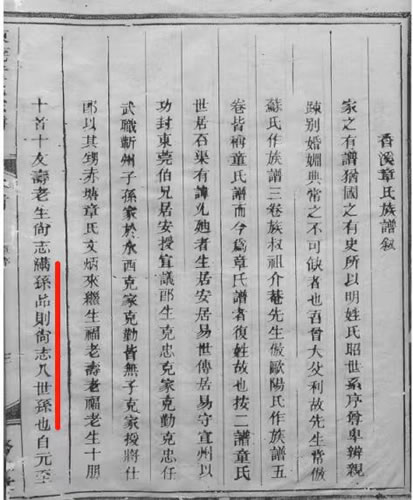 香溪章氏族譜敘
家之有譜猶國之有史所以明姓氏昭世系序尊卑辨親
踈别婚媾典常之不可缺者也吾曾大父利故先生嘗倣
蘇氏作族譜三卷族叔祖介菴先生倣歐陽氏作族譜五
卷皆稱童氏譜而今爲章氏譜者復姓故也按二譜童氏
世居石渠有諱光她者生居安居易世傳居易守宜州以
功封東莞伯兄居安授宜議郎生克忠克家克勤克忠任
武職蘄州子孫家於水西克家克勤皆無子克家授將仕
郎以其甥赤塘章氏文炳來繼生福老壽老福老生十朋
十首十友壽老生尙志滿孫品則尙志八世孫也自元至